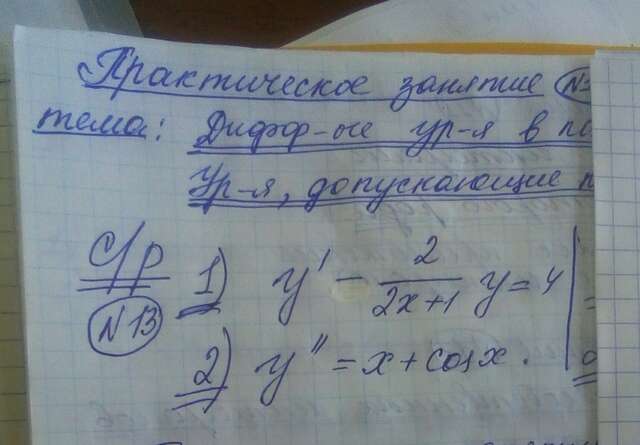 Практическое занятие
тема: Дифф-ые ур-я в
Ур-я, допускающие
С/р 1) y' - 2/(2x+1) y = 4
N13
2) y'' = x + cos x.